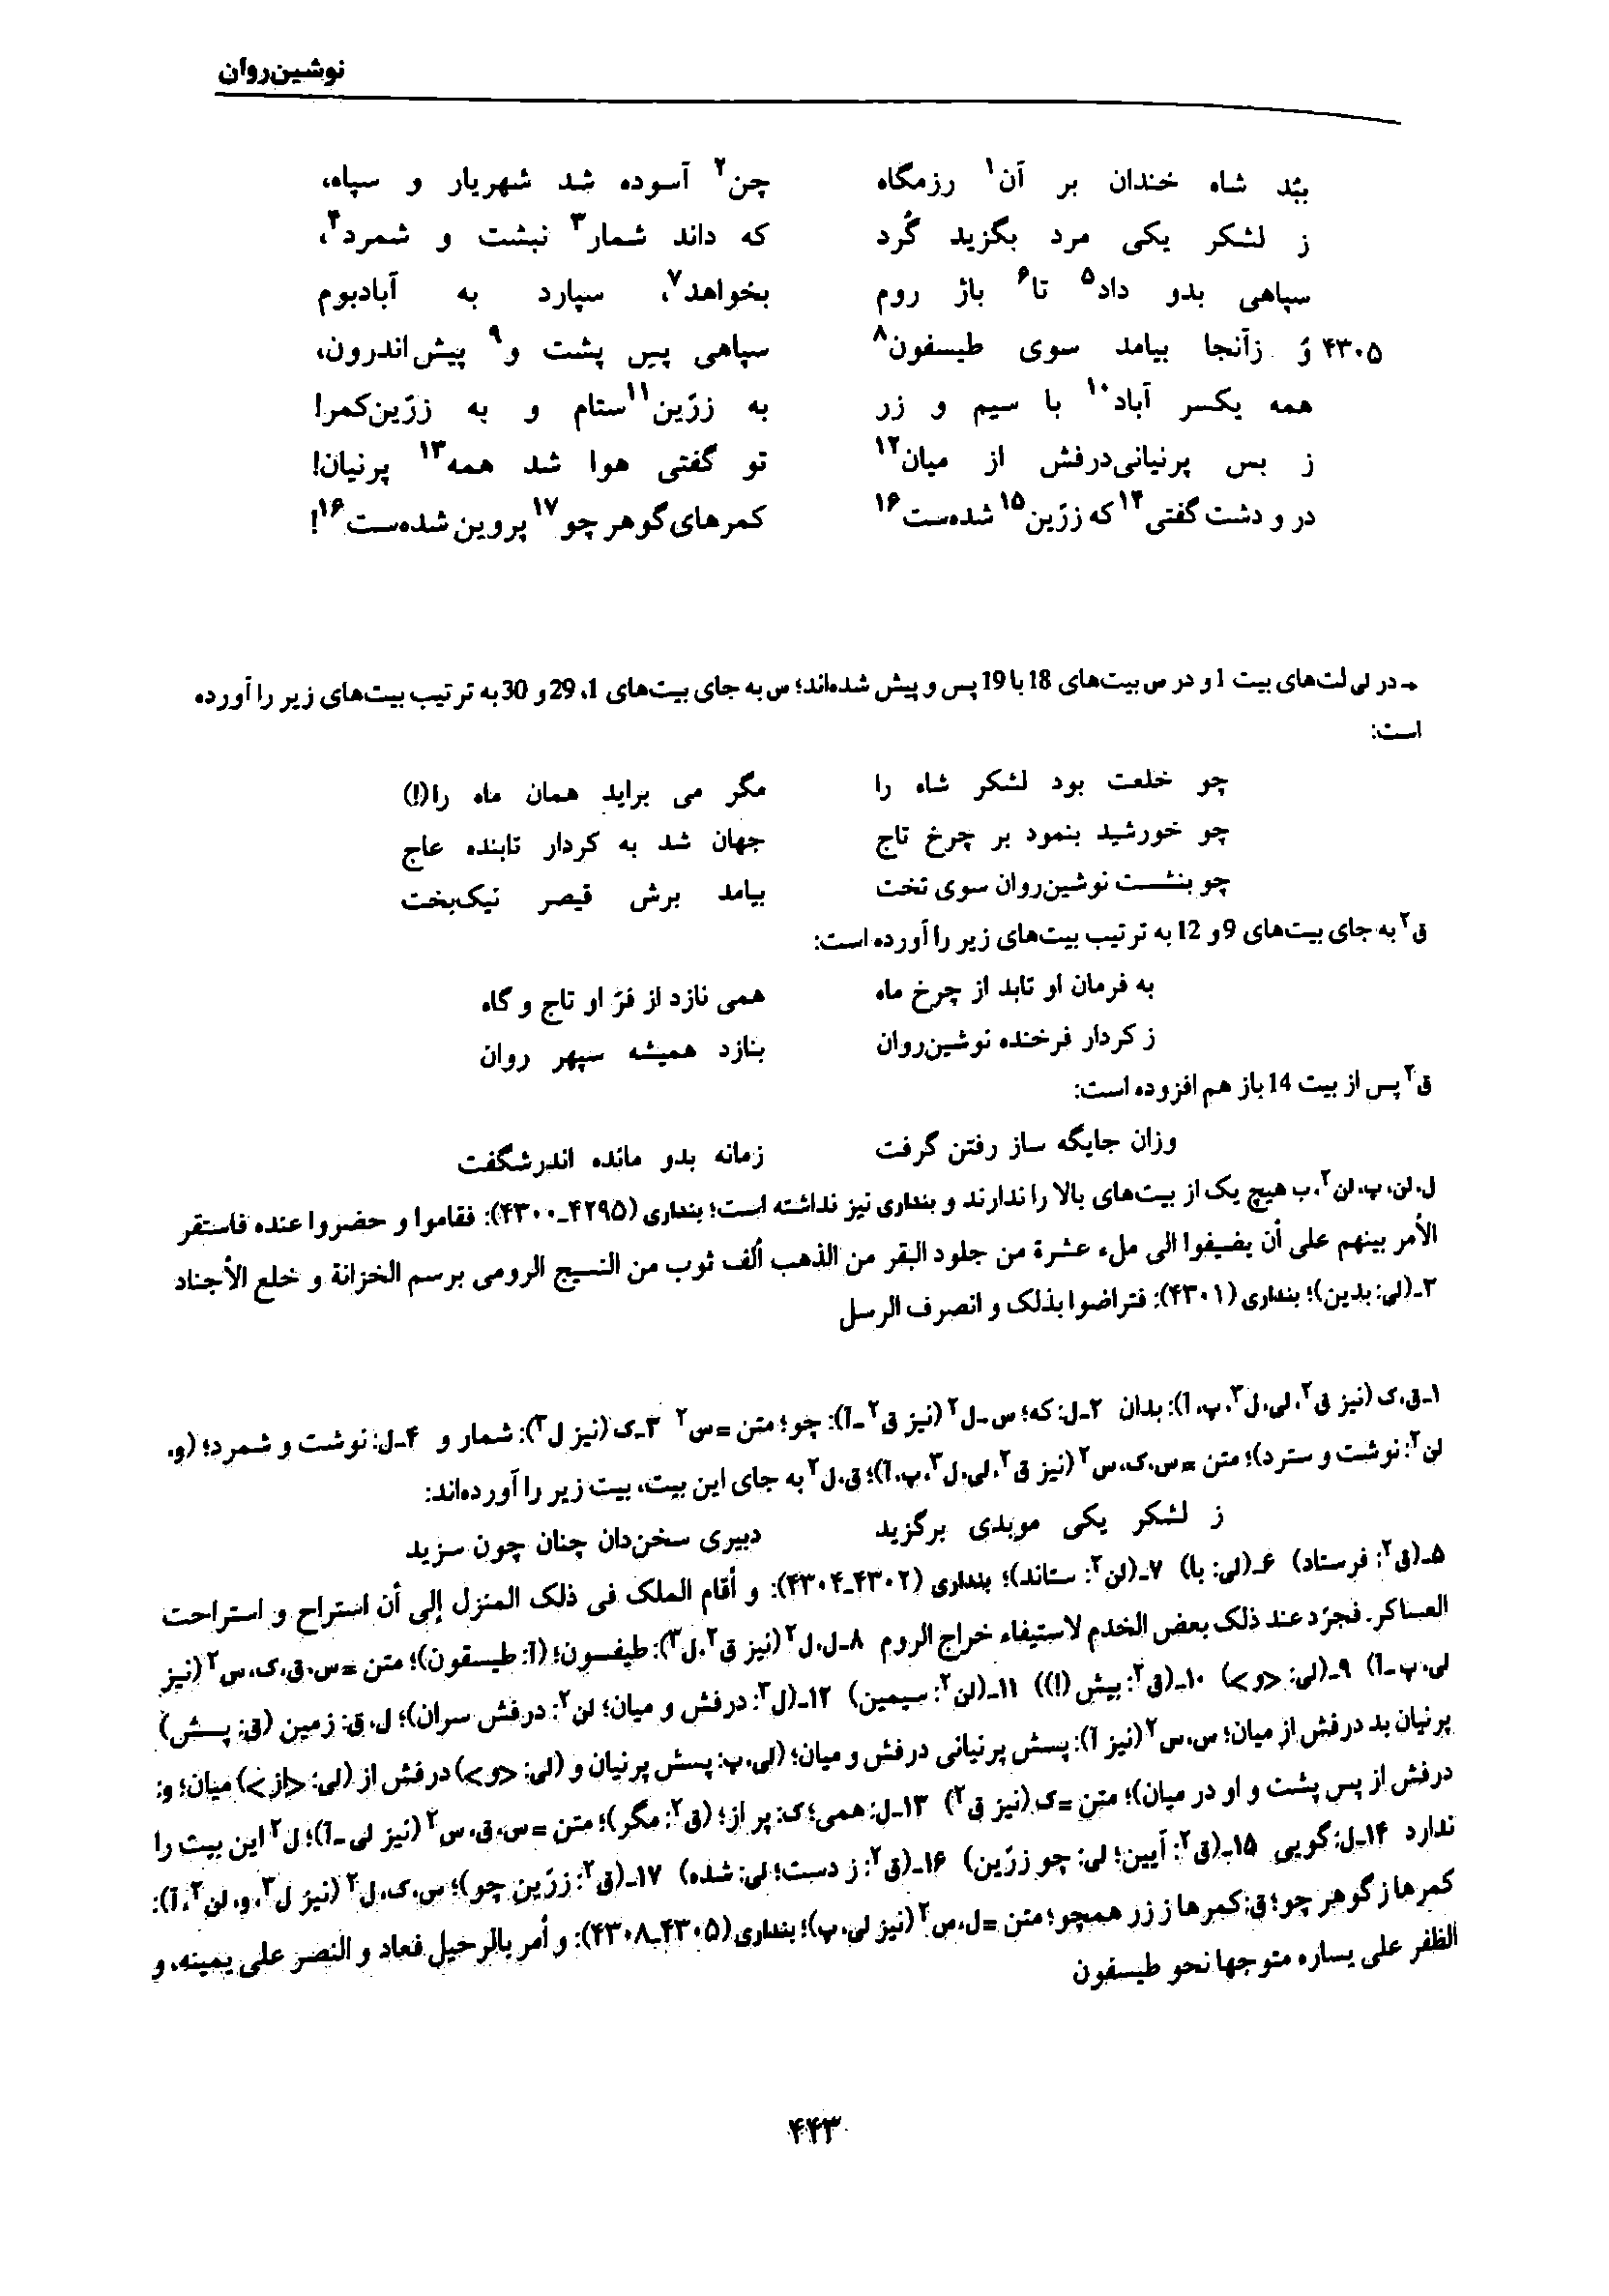 نوشین‌روان
ببُد شاه خندان بر آن۱ رزمگاه چن۲ آسوده شد شهریار و سپاه،
ز لشکر یکی مرد بگزید گُرد که داند شمار۳ نبشت و شمرد۴،
سپاهی بدو داد۵ تا۶ باژ روم بخواهد۷، سپارد به آبادبوم
۴۳۰۵ وُ زآنجا بیامد سوی طیسفون۸ سپاهی پس پشت و۹ پیش‌اندرون،
همه یکسر آباد۱۰ با سیم و زر به زرّین۱۱ ستام و به زرّین‌کمر!
ز بس پرنیانی‌درفش از میان۱۲ تو گفتی هوا شد همه۱۳ پرنیان!
در و دشت گفتی۱۴ که زرّین۱۵ شده‌ست۱۶ کمرهای گوهر چو۱۷ پروین شده‌ست۱۶!
→ در لی لت‌های بیت 1 و در س بیت‌های 18 با 19 پس و پیش شده‌اند؛ س به جای بیت‌های 1، 29 و 30 به ترتیب بیت‌های زیر را آورده
است:
چو خلعت بود لشکر شاه را مگر می براید همان ماه را(!)
چو خورشید بنمود بر چرخ تاج جهان شد به کردار تابنده عاج
چو بنشست نوشین‌روان سوی تخت بیامد برش قیصر نیک‌بخت
ق۲ به جای بیت‌های 9 و 12 به ترتیب بیت‌های زیر را آورده است:
به فرمان او تابد از چرخ ماه همی نازد از فرّ او تاج و گاه
ز کردار فرخنده نوشین‌روان بنازد همیشه سپهر روان
ق۲ پس از بیت 14 باز هم افزوده است:
وزان جایگه ساز رفتن گرفت زمانه بدو مانده اندرشگفت
ل، لن، پ، لن۲، ب هیچ یک از بیت‌های بالا را ندارند و بنداری نیز نداشته است؛ بنداری (۴۲۹۵ـ۴۳۰۰): فقاموا و حضروا عنده فاستقر
الأمر بینهم علی أن یضیفوا الی ملء عشرة من جلود البقر من الذهب ألف ثوب من النسیج الرومی برسم الخزانة و خلع الأجناد
۲ـ(لی: بدین)؛ بنداری (۴۳۰۱): فتراضوا بذلک و انصرف الرسل
۱ـ ق، ک (نیز ق۲، لی، ل۳، پ، آ): بدان ۲ـ ل: که؛ س ـ ل۲ (نیز ق۲ ـ آ): چو؛ متن = س۲ ۳ـ ک (نیز ل۳): شمار و ۴ـ ل: نوشت و شمرد؛ (و،
لن۲: نوشت و سترد)؛ متن = س، ک، س۲ (نیز ق۲، لی، ل۳، پ، آ)؛ ق، ل۲ به جای این بیت، بیت زیر را آورده‌اند:
ز لشکر یکی موبدی برگزید دبیری سخن‌دان چنان چون سزید
۵ـ(ق۲: فرستاد) ۶ـ(لی: با) ۷ـ(لن۲: ستاند)؛ بنداری (۴۳۰۲ـ۴۳۰۴): و أقام الملک فی ذلک المنزل إلی أن استراح و استراحت
العساکر. فجرّد عند ذلک بعض الخدم لاستیفاء خراج الروم ۸ـ ل، ل۲ (نیز ق۲، ل۳): طیفسون؛ (آ: طیسقون)؛ متن = س، ق، ک، س۲ (نیز
لی، پ ـ آ) ۹ـ(لی: <و>) ۱۰ـ(ق۲: بیش (!)) ۱۱ـ(لن۲: سیمین) ۱۲ـ(ل۳: درفش و میان؛ لن۲: درفش سران)؛ ل، ق: زمین (ق: پسش)
پرنیان بد درفش از میان؛ س، س۲ (نیز آ): پسش پرنیانی درفش و میان؛ (لی، پ: پسش پرنیان و (لی: <و>) درفش از (لی: <از>) میان؛ و:
درفش از پس پشت و او در میان)؛ متن = ک (نیز ق۲) ۱۳ـ ل: همی؛ ک: پر از؛ (ق۲: مگر)؛ متن = س، ق، س۲ (نیز لی ـ آ)؛ ل۲ این بیت را
ندارد ۱۴ـ ل: گویی ۱۵ـ(ق۲: آیین؛ لی: چو زرّین) ۱۶ـ(ق۲: ز دست؛ لی: شده) ۱۷ـ(ق۲: زرّین چو)؛ س، ک، ل۲ (نیز ل۳، و، لن۲، آ):
کمرها ز گوهر چو؛ ق: کمرها ز زر همچو؛ متن = ل، س۲ (نیز لی، پ)؛ بنداری (۴۳۰۵ـ۴۳۰۸): و أمر بالرحیل فعاد و النصر علی یمینه، و
الظفر علی یساره متوجها نحو طیسفون
۴۴۳